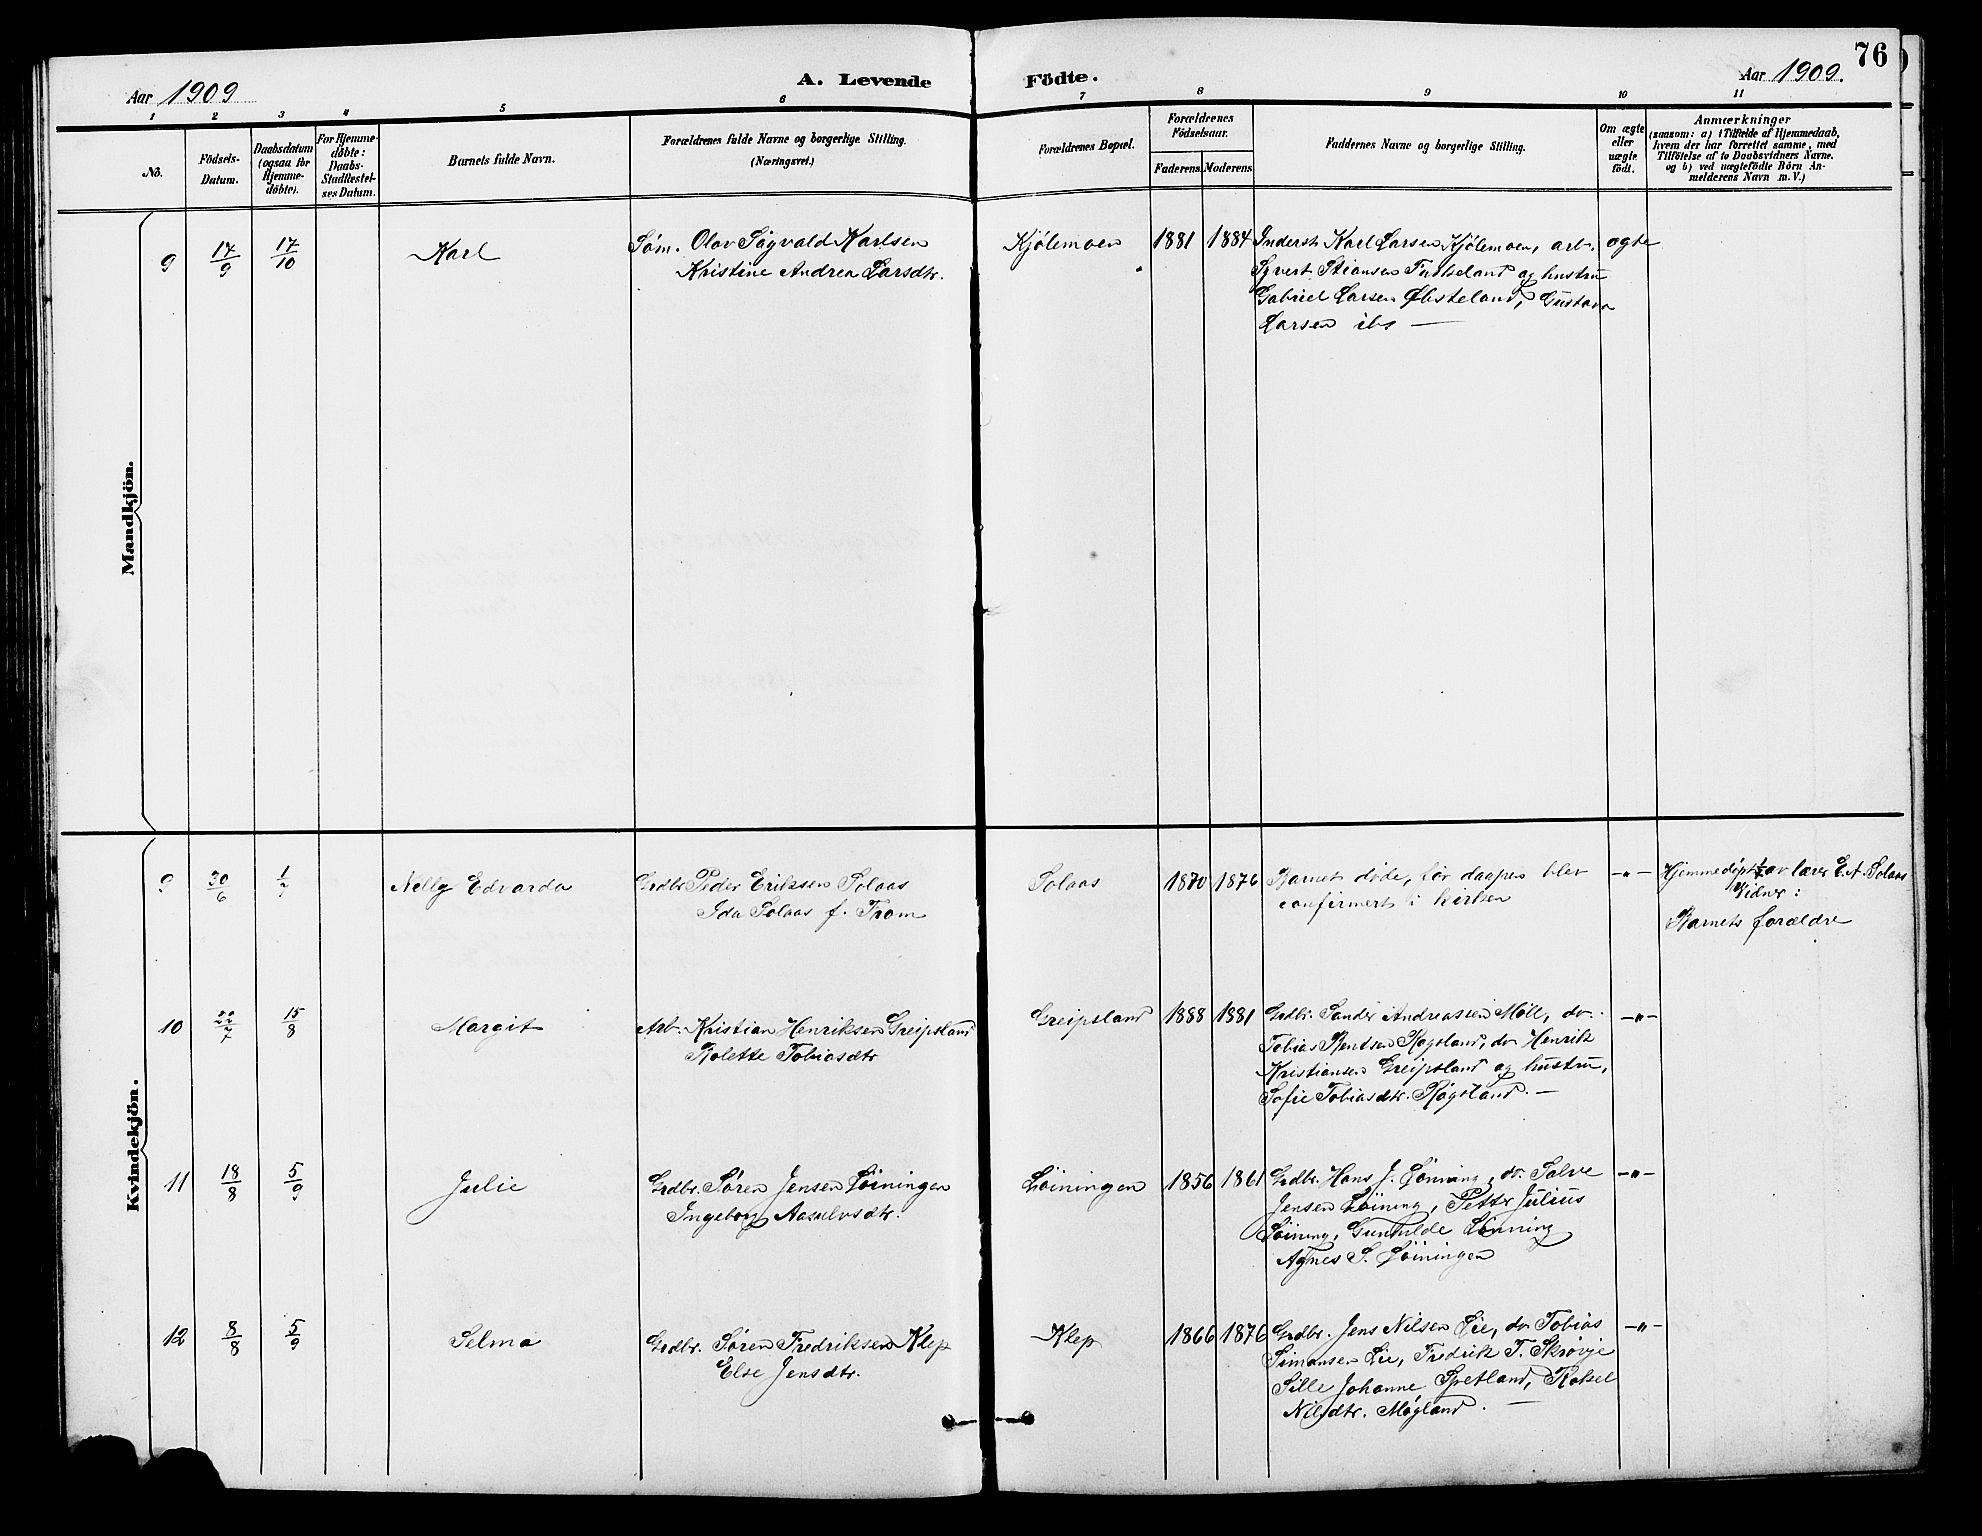 76
Aar 1909
A. Levende Födte.
Aar 1909.
1 2 3 4 5 6 7 8 9 10 11
No.
Födsels-Datum.
Daabsdatum (ogsaa for Hjemmedöbte).
For Hjemmedöbte: Daabs-Stadfestelses Datum.
Barnets fulde Navn.
Forældrenes fulde Navne og borgerlige Stilling.
(Næringsvei.)
Forældrenes Bopæl.
Forældrenes Födselsaar.
Faderens. Moderens
Faddernes Navne og borgerlige Stilling.
Om ægte eller uægte födt.
Anmærkninger
(saasom: a) i Tilfælde af Hjemmedaab,
hvem der har forrettet samme, med
Tilföielse af to Daabsvidners Navne.
og b) ved uægtefödte Börn An-
melderens Navn m. V.)
Mandkjön.
9 17/9 17/10 Karl Søm. Olav Sigvald Karlsen Kjölemoen 1881 1884 Inderst Karl Larsen Kjölemoen, arb. ogte
Kristine Andrea Larsdtr. Syvert Stiansen og hustru
Gabriel Larsen Øbsteland, Gustava
Larsen ibs —
Kvindekjön.
9 30/6 1/7 Nelly Edvarda Grdbr Peder Eriksen Solaas Solaas 1870 1876 Barnet døde, før daapen blev -"- Hjemmedøpt 1/7 av lærer E.A. Solaas
Ida Solaas f. Trom confirmert i kirken Vidner:
Barnets forældre
10 22/7 15/8 Margit Arb. Kristian Henriksen Greipsland Greipsland 1888 1881 Grdbr. Sander Andreassen Møll, do. -"-
Rolette Tobiasdtr Tobias Bentsen Røgsland, do Henrik
Kristiansen Greipsland og hustru,
Sofie Tobiasdtr. Røgsland. —
11 18/8 5/9 Julie Grdbr. Søren Jensen Löiningen Löiningen 1856 1861 Grdbr. Hans J. Lönning, do. Salve -"-
Ingeborg Aasulvsdtr. Jensen Löining, Petter Julius
Löining, Gunhilde Lönning
Agnes S. Löiningen
12 8/8 5/9 Selma Grdbr. Søren Fredriksen Klep Klep 1866 1876 Grdbr. Jens Nilsen Lie, do Tobias -"-
Else Jensdtr. Simonsen Lie, Fredrik T. Skrøvje
Sille Johanne Spetland, Rakel
Nilsdtr. Møgland. —